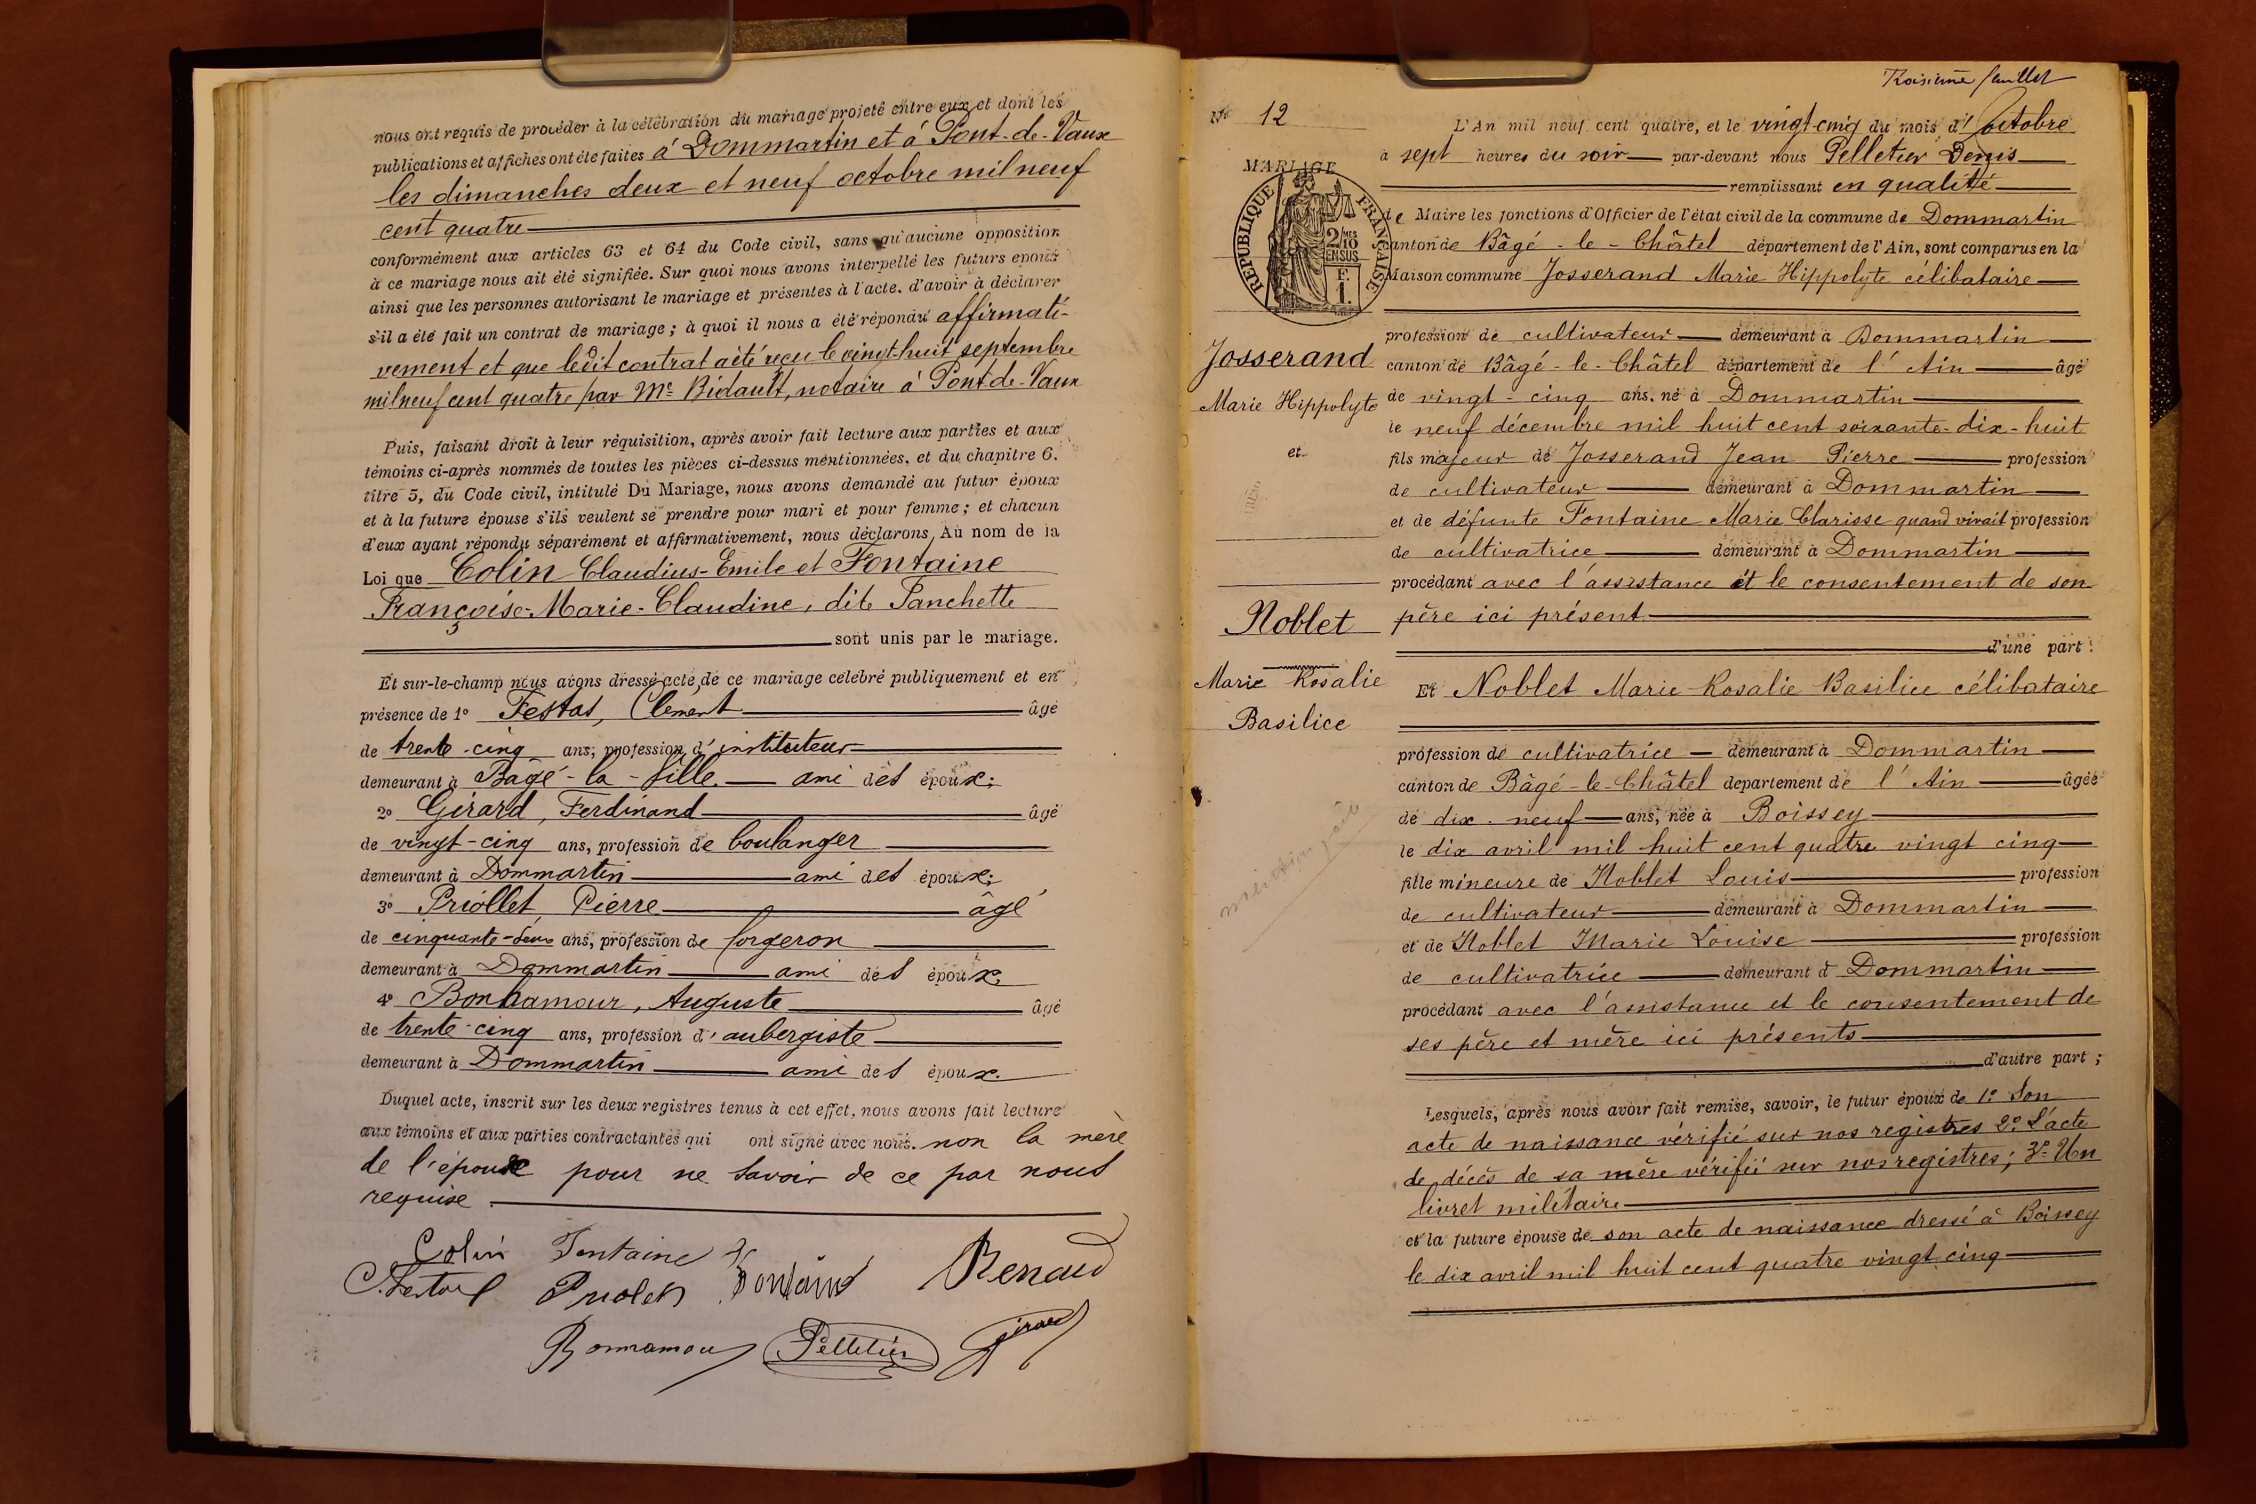 nous ont requis de procéder à la célébration du mariage projeté entre eux et dont les
publications et affiches ont été faites à Dommartin et à Pont-de-Vaux
les dimanches deux et neuf octobre mil neuf
cent quatre
conformément aux articles 63 et 64 du Code civil, sans qu'aucune opposition
à ce mariage nous ait été signifiée. Sur quoi nous avons interpellé les futurs époux
ainsi que les personnes autorisant le mariage et présentes à l'acte, d'avoir à déclarer
s'il a été fait un contrat de mariage; à quoi il nous a été répondu affirmati-
vement et que ledit contrat a été reçu le vingt-huit septembre
mil neuf cent quatre par Me Bidault, notaire à Pont-de-Vaux
Puis, faisant droit à leur réquisition, après avoir fait lecture aux parties et aux
témoins ci-après nommés de toutes les pièces ci-dessus mentionnées, et du chapitre 6,
titre 5, du Code civil, intitulé Du Mariage, nous avons demandé au futur époux
et à la future épouse s'ils veulent se prendre pour mari et pour femme; et chacun
d'eux ayant répondu séparément et affirmativement, nous déclarons, Au nom de la
Loi que Colin Claudius-Emile et Fontaine
Françoise-Marie-Claudine, dite Panchette
sont unis par le mariage.
Et sur-le-champ nous avons dressé acte de ce mariage célébré publiquement et en
présence de 1° Festas, Clément âgé
de trente-cinq ans, profession d'instituteur
demeurant à Bâgé-la-Ville ami des époux;
2° Gérard, Ferdinand âgé
de vingt-cinq ans, profession de boulanger
demeurant à Dommartin ami des époux;
3° Priollet, Pierre âgé
de cinquante-deux ans, profession de forgeron
demeurant à Dommartin ami des époux;
4° Bonnamour, Auguste âgé
de trente-cinq ans, profession d'aubergiste
demeurant à Dommartin ami des époux.
Duquel acte, inscrit sur les deux registres tenus à cet effet, nous avons fait lecture
aux témoins et aux parties contractantes qui ont signé avec nous. non la mère
de l'épouse pour ne savoir de ce par nous
requise.
Colin Fontaine
Fontaine Renaud
C. Festas Priolet
Bonnamour Pelletier Girard
Troisième feuillet
No 12
L'An mil neuf cent quatre, et le vingt-cinq du mois d'octobre
à sept heures du soir par-devant nous Pelletier Denis
remplissant en qualité
MARIAGE
RÉPUBLIQUE FRANÇAISE
2/10 MES
EN SUS
F.
1.
de Maire les fonctions d'Officier de l'état civil de la commune de Dommartin
canton de Bâgé-le-Châtel département de l'Ain, sont comparus en la
Maison commune Josserand Marie Hippolyte célibataire
profession de cultivateur demeurant à Dommartin
Josserand
Marie Hippolyte
et
canton de Bâgé-le-Châtel département de l'Ain âgé
de vingt-cinq ans, né à Dommartin
le neuf décembre mil huit cent soixante-dix-huit
fils majeur de Josserand Jean Pierre profession
de cultivateur demeurant à Dommartin
et de défunte Fontaine Marie Clarisse quand vivait profession
de cultivatrice demeurant à Dommartin
procédant avec l'assistance et le consentement de son
père ici présent
d'une part;
Noblet
Marie Rosalie
Basilice
Et Noblet Marie Rosalie Basilice célibataire
profession de cultivatrice demeurant à Dommartin
canton de Bâgé-le-Châtel département de l'Ain âgée
de dix-neuf ans, née à Boissey
le dix avril mil huit cent quatre vingt cinq
fille mineure de Noblet Louis profession
de cultivateur demeurant à Dommartin
et de Noblet Marie Louise profession
de cultivatrice demeurant à Dommartin
procédant avec l'assistance et le consentement de
ses père et mère ici présents
d'autre part;
mention faite
Lesquels, après nous avoir fait remise, savoir, le futur époux de 1° Son
acte de naissance vérifié sur nos registres 2° L'acte
de décès de sa mère vérifié sur nos registres; 3° Un
livret militaire
et la future épouse de son acte de naissance dressé à Boissey
le dix avril mil huit cent quatre vingt cinq